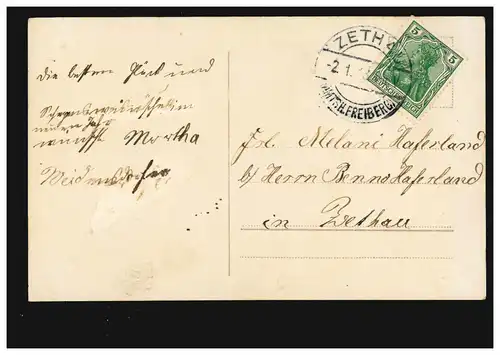 die besten Glück und
Segenswünsche im
neuen Jahr
wünscht Martha
ZETHAU
-2.1.
AMTSH. FREIBERG
5 5
Frl. Melani Haferland
b/ Herrn Benno Haferland
in Zethau